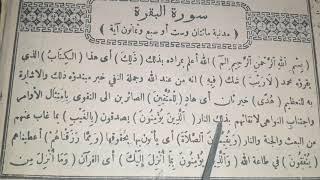 سورة البقرة
﴿ مدنية مائتان وست أو سبع وثمانون آية ﴾
بسم الله الرحمن الرحيم الم الله أعلم بمراده بذلك ( ذَلِكَ ) أى هذا ( الْكِتَابُ ) الذى
يقرؤه محمد ( لاَ رَيْبَ ) شك ( فِيهِ ) أنه من عند الله وجملة النفى خبر مبتدؤه ذلك والاشارة
به للتعظيم ( هُدًى ) خبر ثان أى هاد ( لِلْمُتَّقِينَ ) الصائرين الى التقوى بامتثال الأوامر
واجتناب النواهى لاتقائهم بذلك النار ( الَّذِينَ يُؤْمِنُونَ ) يصدقون ( بِالْغَيْبِ ) بما غاب عنهم
من البعث والجنة والنار ( وَيُقِيمُونَ الصَّلاَةَ ) أى يأتون بها بحقوقها ( وَمِمَّا رَزَقْنَاهُمْ ) أعطيناهم
( يُنْفِقُونَ ) فى طاعة الله ( وَالَّذِينَ يُؤْمِنُونَ بِمَا أُنْزِلَ إِلَيْكَ ) أى القرآن ( وَمَا أُنْزِلَ مِنْ